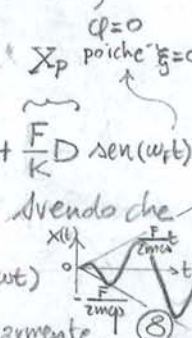 φ=0
Xp poichè ξ=0
+ F/K D sen(ωft)
Avendo che
X(t) F/2mωs t
0 t
ωt) - F/2mωs
armente 8